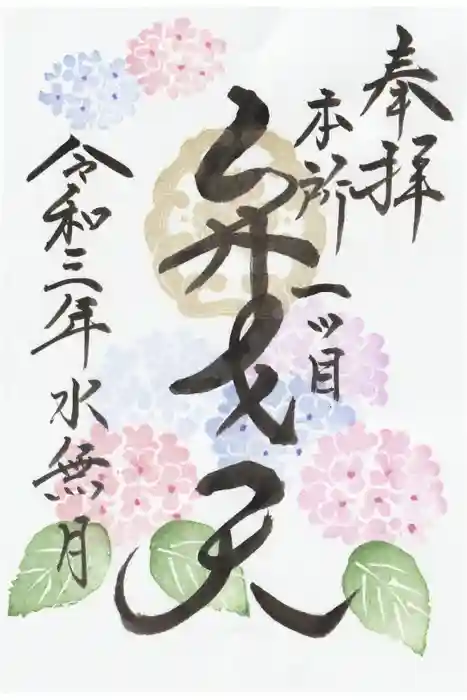 奉拝
本所一ッ目
弁才天
令和三年水無月